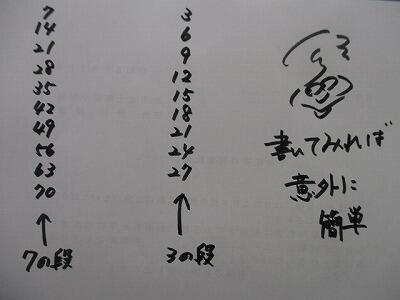 7
14
21
28
35
42
49
56
63
70
7の段
3
6
9
12
15
18
21
24
27
3の段
書いてみれば
意外に
簡単